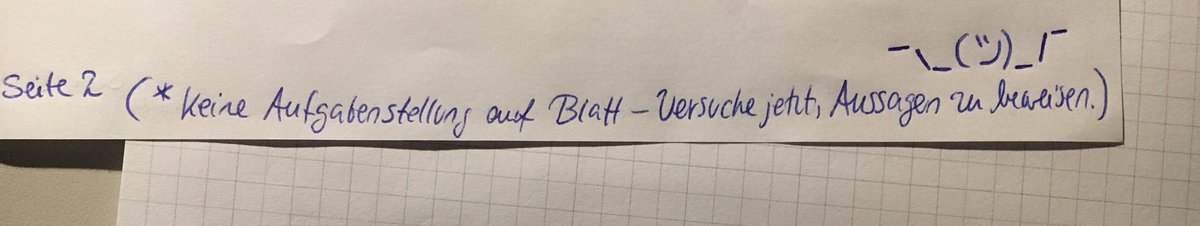 ¯\_(ツ)_/¯
Seite 2 (* Keine Aufgabenstellung auf Blatt – Versuche jetzt, Aussagen zu beweisen.)